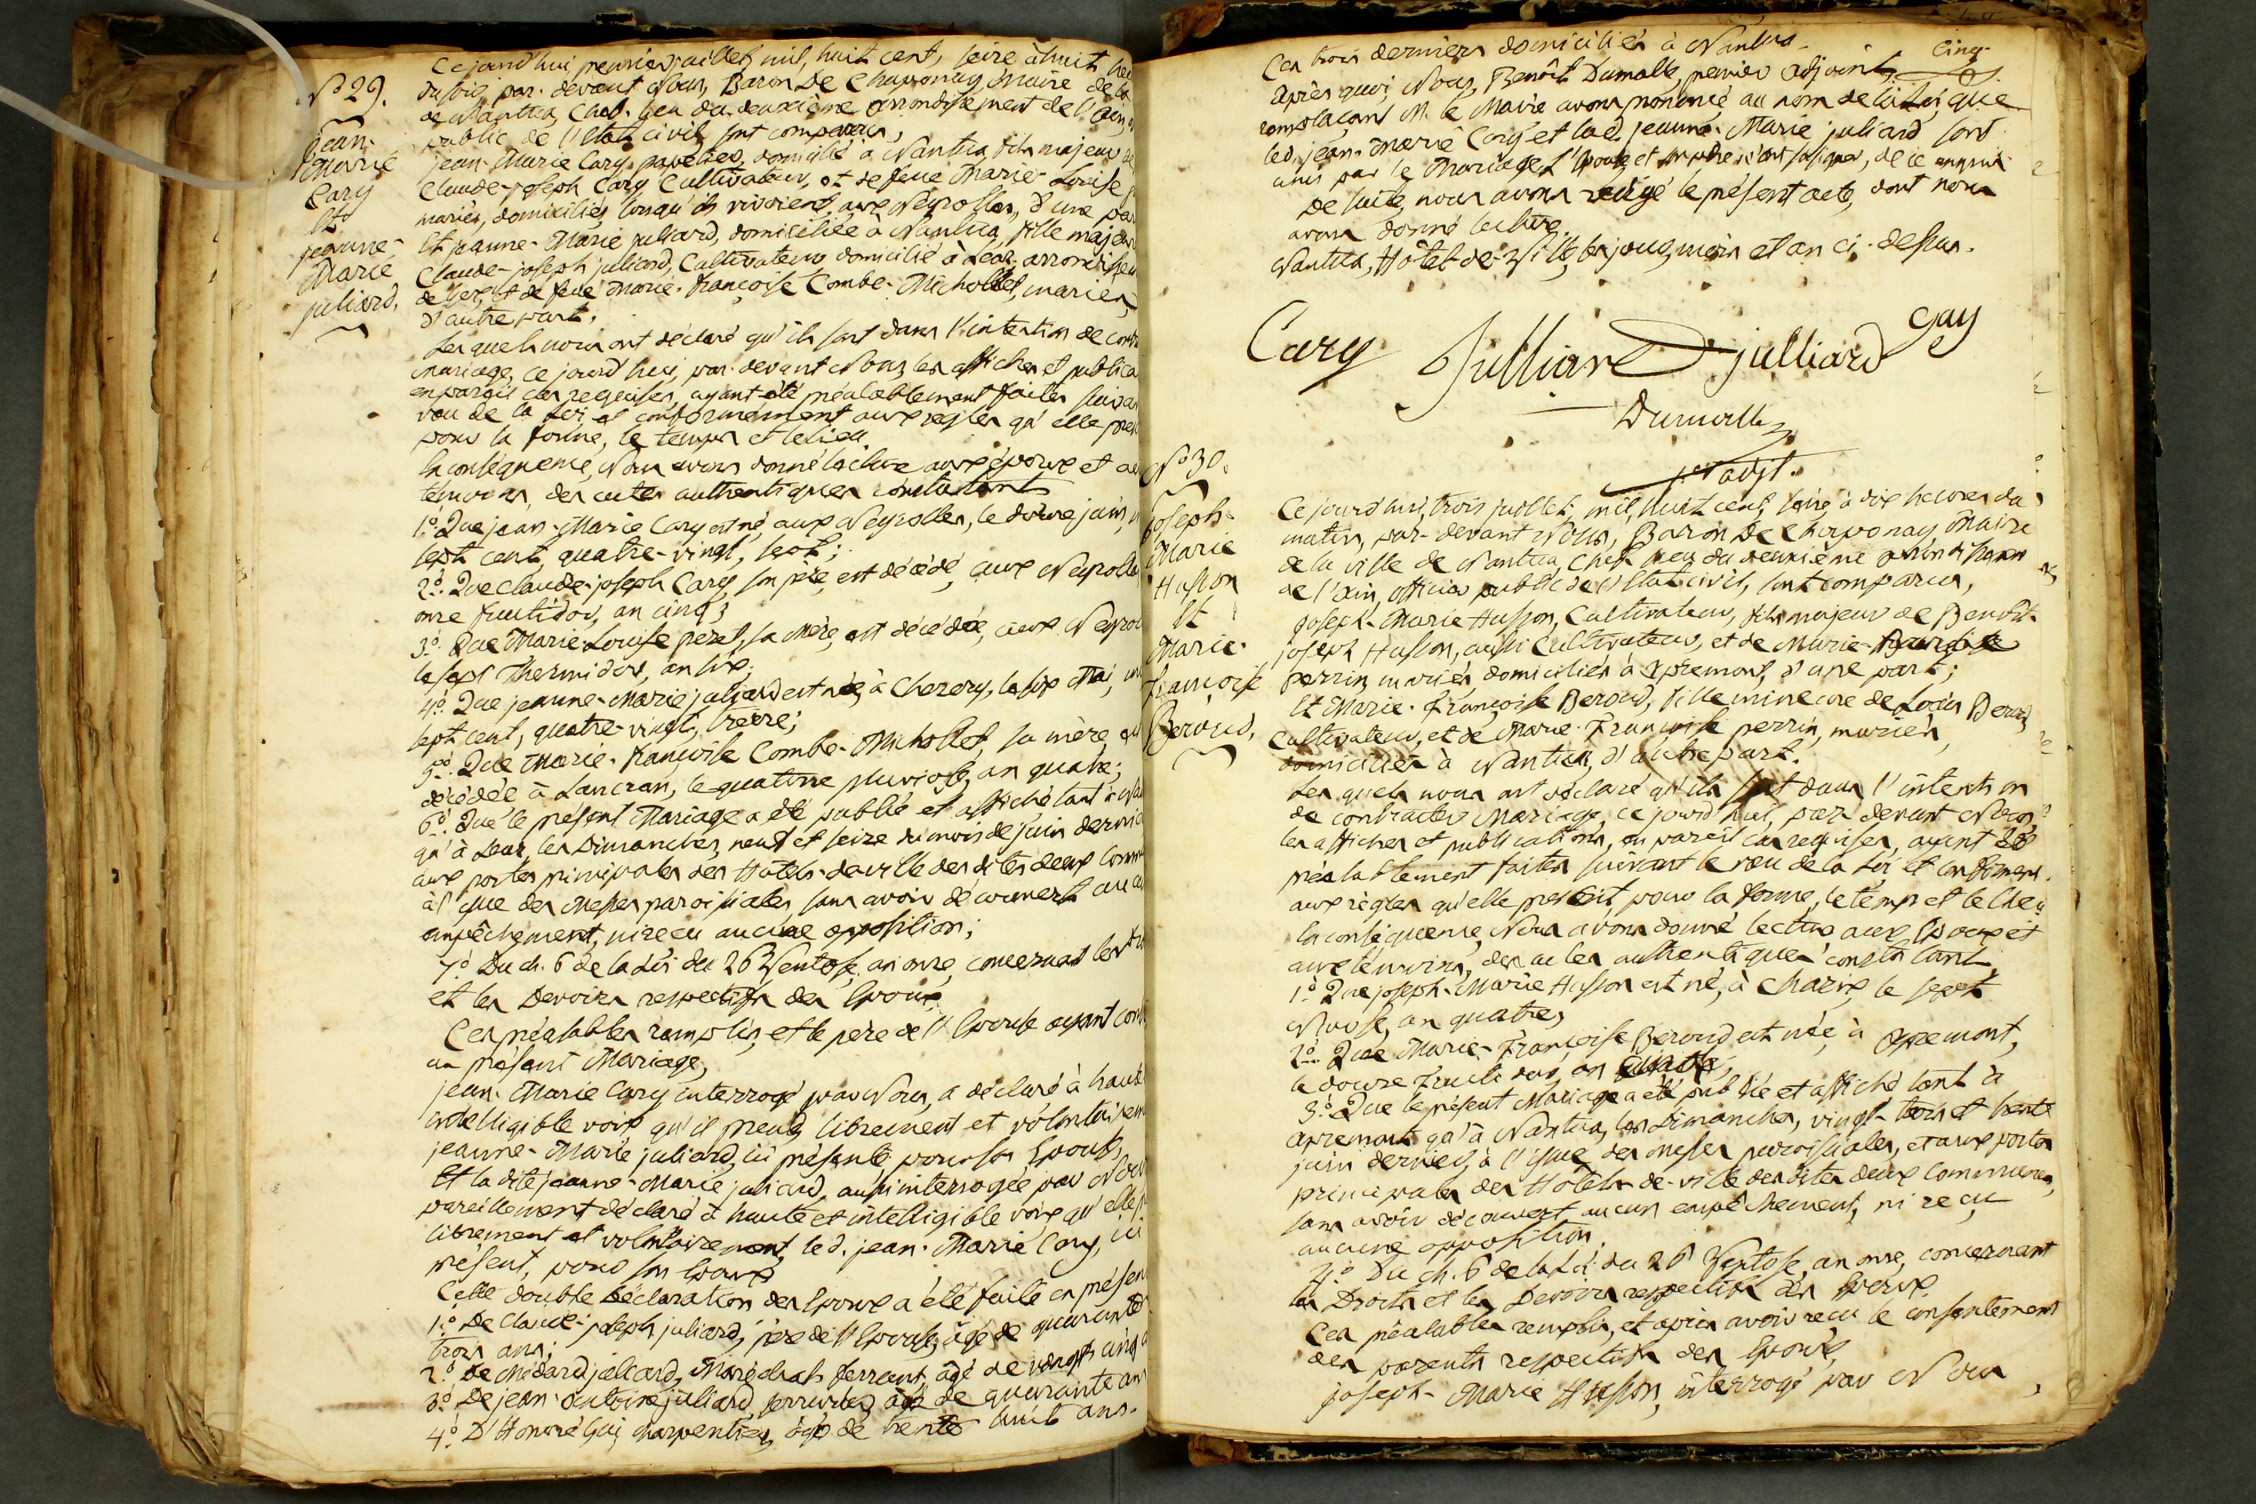 N° 29.
jean-
Marie
Cary
Et
jeanne-
Marie
juliard.
Ce jourd'hui premier juillet mil, huit cent, seize à huit heu
du soir, par-devant Nous, Baron De Chaponay Maire de la
de Nantua, Chef-lieu du deuxième arrondissement de l'Ain,
public de l'Etat civil sont comparus,
jean-Marie Cary, papetier, domicilié à Nantua, fils majeur de
Claude-joseph Cary Cultivateur, et de feue Marie-Louise
mariés, domiciliés lorsqu'ils vivoient, aux Neyrolles, d'une par
Et jeanne-Marie juliard, domiciliée à Nantua, fille majeure
Claude-joseph juliard, Cultivateur domicilié à Léaz arrondissem
de Gex, et de feue Marie-françoise Combe-Michollet, mariés,
d'autre part,
Lesquels nous ont déclaré qu'ils sont dans l'intention de cont
mariage, ce jourd'hui, par-devant Nous, les affiches et publica
en pareil cas requises, ayant été préalablement faites suivan
vœu de la Loi, et conformément aux règles qu'elle pres
pour la forme, le temps et le lieu.
En conséquence, Nous avons donné lecture aux époux et au
témoins, des actes authentiques constatant
1.° Que jean-Marie Cary est né, aux Neyrolles, le douze juin,
sept cent, quatre-vingt, sept;
2.° Que Claude-joseph Cary, son père, est décédé, aux Neyrolles
onze fructidor, an cinq;
3.° Que Marie-Louise Perret, sa mère, est décédée, aux Neyrol
le sept Thermidor, an six;
4.° Que jeanne-Marie juliard est née, à Chezery, le six Mai,
sept cent, quatre-vingt, treize;
5.° Que Marie-françoise Combe-Michollet, sa mère, est
décédée à Lancran, le quatorze pluviose, an quatre;
6.° Que le présent Mariage a été publié et affiché tant à Nan
qu'à Léaz, les Dimanches, neuf et seize du mois de juin dernier
aux portes principales des Hôtels-de ville des dites deux comm
à l'issue des Messes paroissiales, sans avoir découvert aucun
empêchement, ni reçu aucune opposition;
7.° Du ch. 6 de la Loi du 26 Ventose, an onze, concernant les
et les Devoirs respectifs des Epoux.
Ces préalables remplis, et le père de l'Epouse ayant cons
au présent Mariage,
jean-Marie Cary interrogé par Nous, a déclaré à haute
intelligible voix qu'il prend librement et volontairem
jeanne-Marie juliard, ici présente pour son Epouse,
Et la dite jeanne-Marie juliard, aussi interrogée par Nous
pareillement déclaré à haute et intelligible voix qu'elle p
librement et volontairement, le d. jean-Marie Cary, ici
présent, pour son Epoux.
Cette double Déclaration des Epoux a été faite en présen
1.° De Claude-joseph juliard, père de l'Epouse, âgé de quarante
trois ans;
2.° De Médard juliard, Maréchal ferrant, âgé de vingt cinq
3.° De jean-Antoine juliard, serrurier, âgé de quarante an
4.° D'Honoré Gay, charpentier, âgé de trente huit ans.
Cinq
Ces trois derniers domiciliés à Nantua.
Après quoi, Nous, Benoît Dumolle, premier adjoint
remplaçant M. le Maire avons prononcé au nom de la Loi, que
led. jean-Marie Cary et lad. jeanne-Marie juliard sont
unis par le Mariage,
De suite, nous avons rédigé le présent acte, dont nous
avons donné lecture.
Nantua, Hôtel-de-Ville, les jour, mois et an ci-dessus.
Cary Julliard julliard Gay
Dumolle
1er adjt.
N° 30.
joseph-
Marie
Husson
Et
Marie-
françoise
Beroud.
Ce jourd'hui, trois juillet, mil, huit cent, seize, à dix heures du
matin, par-devant Nous, Baron De Chaponay Maire
de la ville de Nantua, Chef lieu du deuxième arrondissem
de l'ain, officier public de l'Etat civil, sont comparus,
joseph-Marie Husson, Cultivateur, fils majeur de Benoît-
joseph Husson, aussi Cultivateur, et de Marie-
Perrin, mariés, domiciliés à Apremont, d'une part;
Et Marie-Françoise Beroud, fille mineure de Louis Beroud
Cultivateur, et de Marie-Françoise perrin, mariés,
domiciliés à Nantua, d'autre part.
Lesquels nous ont déclaré qu'ils sont dans l'intention
de contracter Mariage, ce jourd'hui, par-devant Nous,
les affiches et publications, en pareil cas requises, ayant été
préalablement faites suivant le vœu de la Loi et conformém.
aux règles qu'elle prescrit, pour la forme, le temps et le lieu.
En conséquence, Nous avons donné lecture aux Epoux et
aux témoins, des actes authentiques constatant,
1.° Que joseph-Marie Husson est né, à Charix, le sept
Nivose, an quatre;
2.° Que Marie-Françoise Beroud est née, à Apremont,
le douze fructidor, an
3.° Que le présent Mariage a été publié et affiché tant à
Apremont qu'à Nantua, les Dimanches, vingt-trois et trente
juin dernier, à l'issue des messes paroissiales, et aux portes
principales des Hôtels-de-ville des dites deux Communes,
sans avoir découvert aucun empêchement, ni reçu
aucune opposition.
4.° Du ch. 6 de la Loi du 26 Ventose, an onze, concernant
les Droits et les Devoirs respectifs des Epoux.
Ces préalables remplis, et après avoir reçu le consentement
des parents respectifs des Epoux,
joseph-Marie Husson, interrogé par Nous,